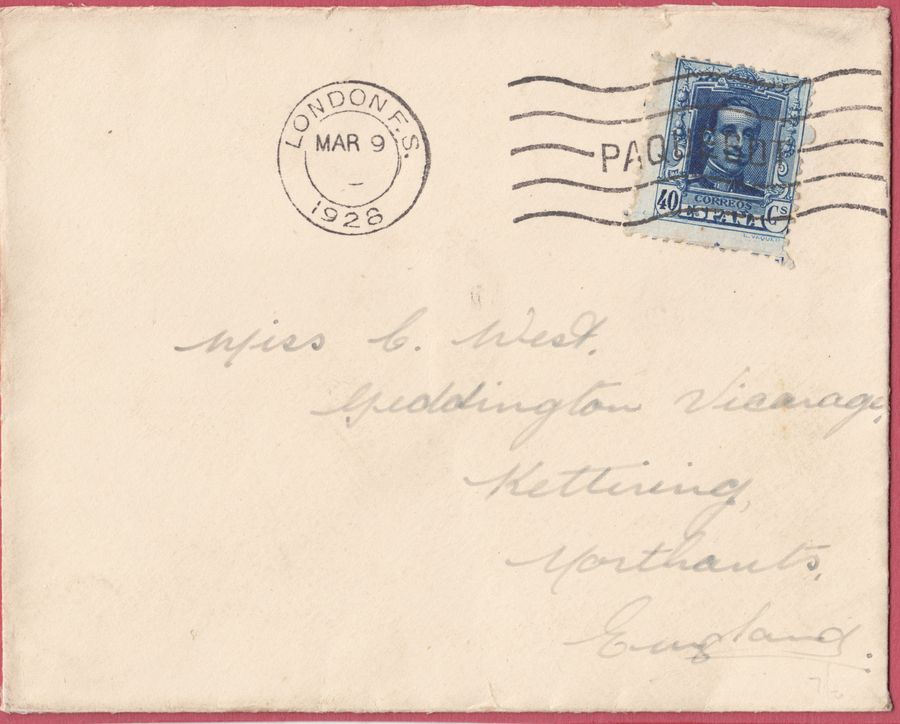 LONDON F.S.
MAR 9
1928
PAQUEBOT
CORREOS
40 ESPAÑA Cs
Miss C. West.
Geddington Vicarage,
Kettering,
Northants.
England.